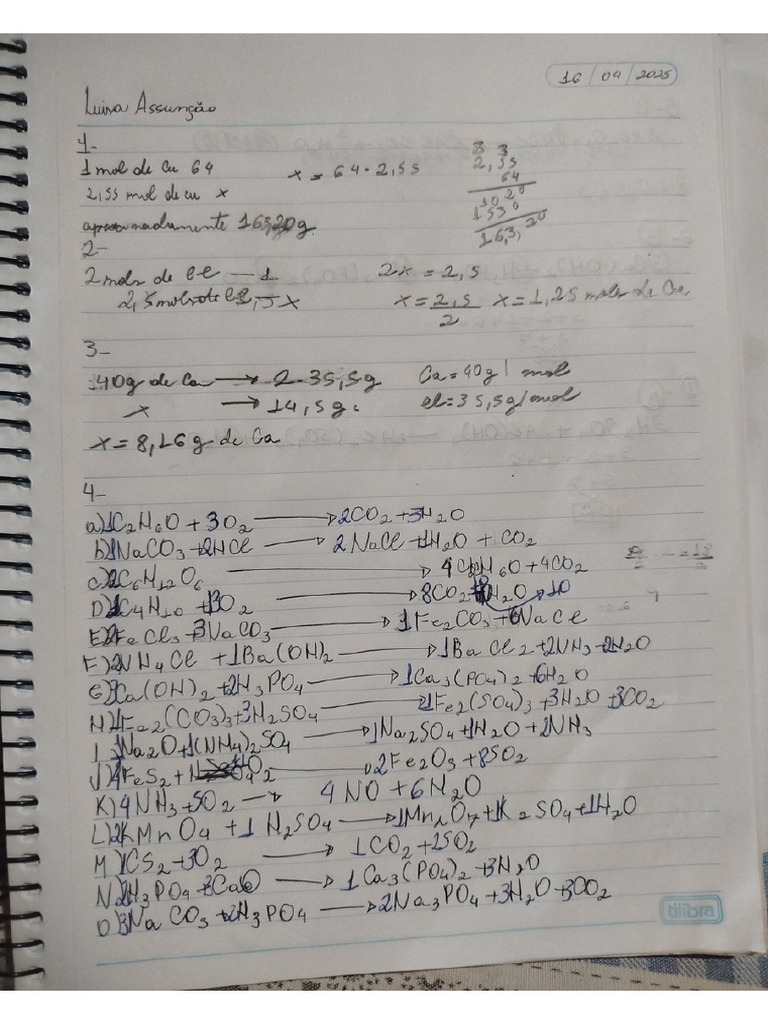 16/04/2025
Luiza Assunção
1-
1 mol de Cu 64 x = 64 · 2,55
2,55 mol de cu x
aproximadamente 163,20g.
8 3
2,55
64
1020
1530
163,20
2-
2 mols de Cl — 1 2x = 2,5
x x = 2,5/2 x = 1,25 mols de Ca.
3-
40g de Ca → 2·35,5g Ca = 40g/mol
x → 14,5g. cl = 35,5g/mol
x = 8,16g de Ca
4-
a) 1C2H6O + 3O2 → 2CO2 + 3H2O
b) 1NaCO3 + 2HCl → 2NaCl + 1H2O + CO2
c) 2C6H12O6 → 4C2H6O + 4CO2
D) 2C4H10 + 13O2 → 8CO2 + H2O 10
E) 2FeCl3 + 3NaCO3 → 1Fe2CO3 + 6NaCl
F) 2NH4Cl + 1Ba(OH)2 → 1BaCl2 + 2NH3 + 2H2O
G) 3Ca(OH)2 + 2H3PO4 → 1Ca3(PO4)2 + 6H2O
H) 1Fe2(CO3)3 + 3H2SO4 → 1Fe2(SO4)3 + 3H2O + 3CO2
I) 1Na2O + 1(NH4)2SO4 → 1Na2SO4 + 1H2O + 2NH3
J) 4FeS2 + O2 → 2Fe2O3 + 8SO2
K) 4NH3 + 5O2 → 4NO + 6H2O
L) 2KMnO4 + 1H2SO4 → 1Mn2O7 + 1K2SO4 + 1H2O
M) 1CS2 + 3O2 → 1CO2 + 2SO2
N) 2H3PO4 + 3CaO → 1Ca3(PO4)2 + 3H2O
O) 3NaCO3 + 2H3PO4 → 2Na3PO4 + 3H2O + 3CO2
tilibra